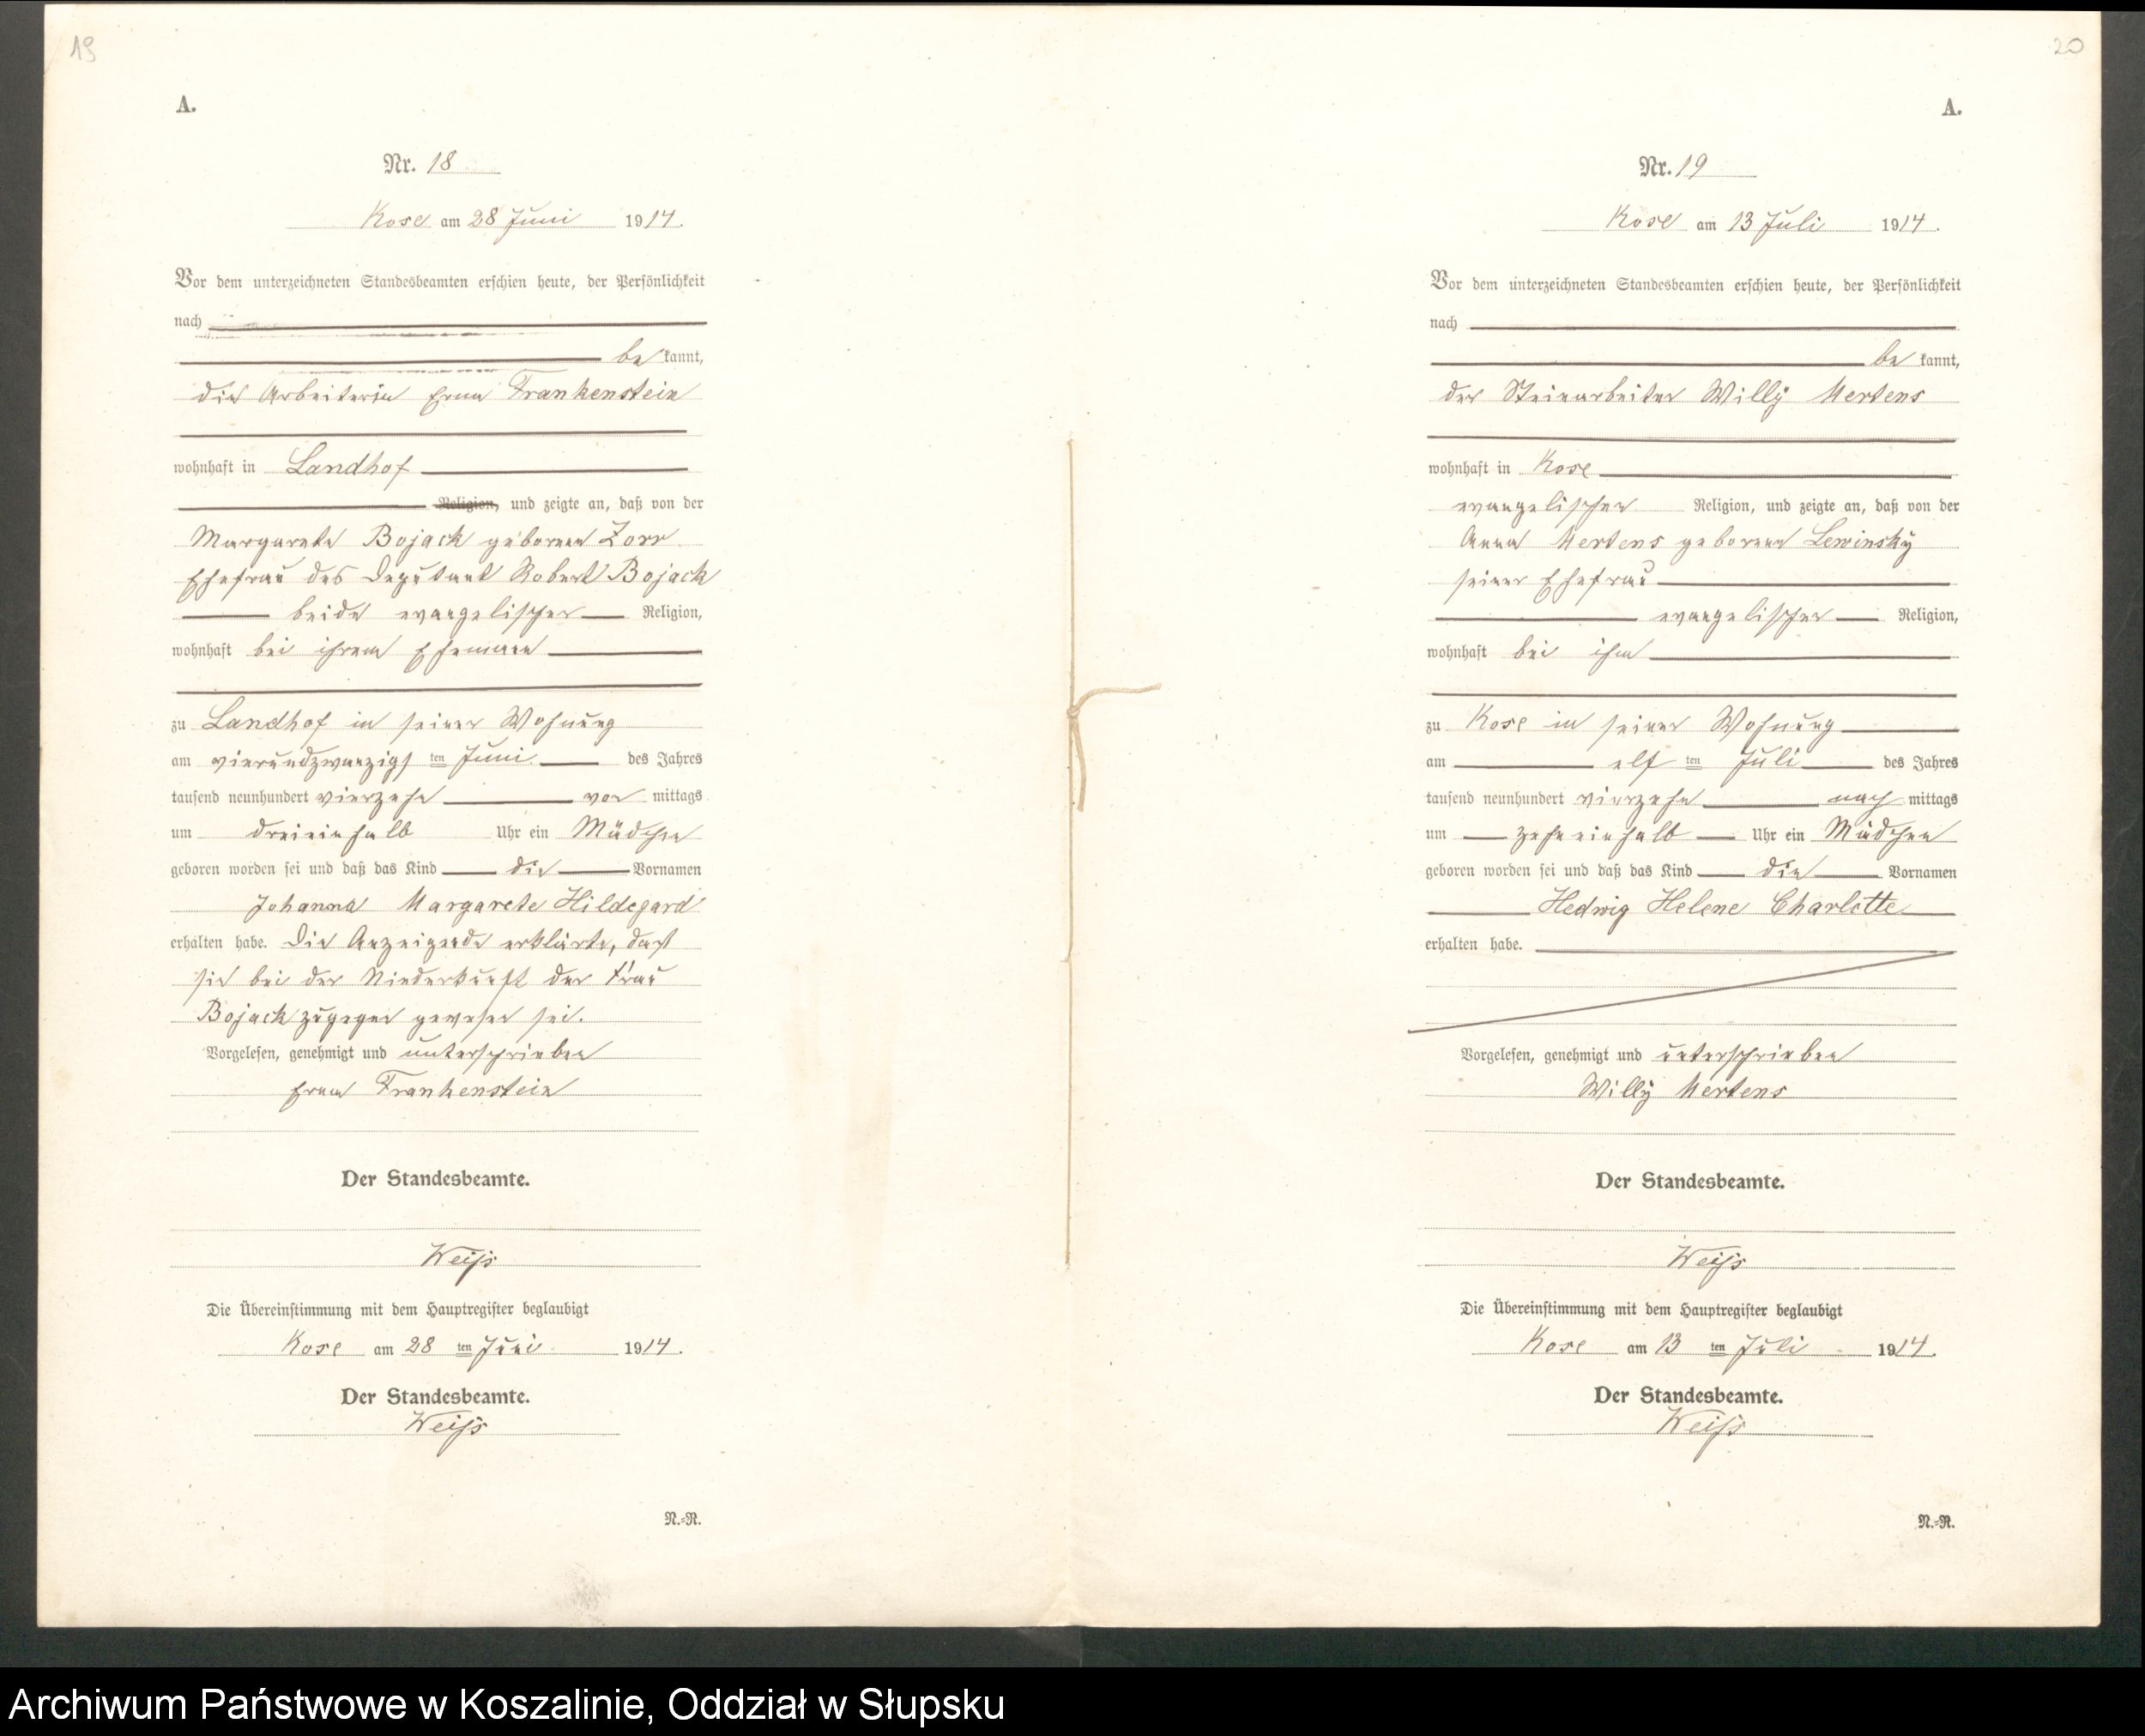 19
A.
Nr. 18
Kose am 28 Juni 1914.
Vor dem unterzeichneten Standesbeamten erschien heute, der Persönlichkeit
nach
be kannt,
die Arbeiterin Erna Frankenstein
wohnhaft in Landhof
Religion, und zeigte an, daß von der
Margarete Bojack geborenen Zorr
Ehefrau des Deputant Robert Bojack
beide evangelischer Religion,
wohnhaft bei ihrem Ehemann
zu Landhof in seiner Wohnung
am vierundzwanzigs ten Juni des Jahres
tausend neunhundert vierzehn vor mittags
um dreieinhalb Uhr ein Mädchen
geboren worden sei und daß das Kind die Vornamen
Johanna Margarete Hildegard
erhalten habe. Die Anzeigende erklärte, daß
sie bei der Niederkunft der Frau
Bojack zugegen gewesen sei.
Vorgelesen, genehmigt und unterschrieben
Erna Frankenstein
Der Standesbeamte.
Weiß
Die Übereinstimmung mit dem Hauptregister beglaubigt
Kose am 28 ten Juni 1914.
Der Standesbeamte.
Weiß
N.=R.
20
A.
Nr. 19
Kose am 13 Juli 1914.
Vor dem unterzeichneten Standesbeamten erschien heute, der Persönlichkeit
nach
be kannt,
der Steinarbeiter Willy Mertens
wohnhaft in Kose
evangelischer Religion, und zeigte an, daß von der
Anna Mertens geborenen Lewinsky
seiner Ehefrau
evangelischer Religion,
wohnhaft bei ihm
zu Kose in seiner Wohnung
am elf ten Juli des Jahres
tausend neunhundert vierzehn nach mittags
um zehneinhalb Uhr ein Mädchen
geboren worden sei und daß das Kind die Vornamen
Hedwig Helene Charlotte
erhalten habe.
Vorgelesen, genehmigt und unterschrieben
Willy Mertens
Der Standesbeamte.
Weiß
Die Übereinstimmung mit dem Hauptregister beglaubigt
Kose am 13 ten Juli 1914.
Der Standesbeamte.
Weiß
N.=R.
Archiwum Państwowe w Koszalinie, Oddział w Słupsku